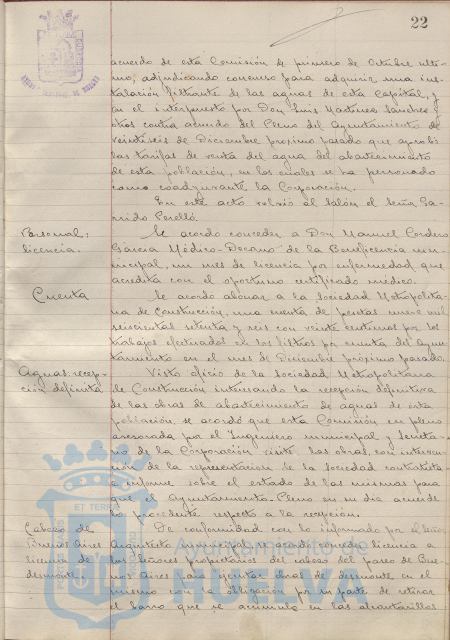 22
acuerdo de esta Comisión de primero de Octubre últi-
mo, adjudicando concurso para adquirir una ins-
talación filtrante de las aguas de esta Capital, y
en el interpuesto por Don Luis Martinez Sanchez y
otros contra acuerdo del Pleno del Ayuntamiento de
veintiseis de Diciembre próximo pasado que aprobó
las tarifas de venta del agua del abastecimiento
de esta población, en los cuales se ha personado
como coadyuvante la Corporación.
En este acto volvió al salón el Señor Ga-
rrido Perelló.
Personal;
licencia.
Se acordó conceder a Don Manuel Cordero
Garcia Médico-Decano de la Beneficencia mu-
nicipal, un mes de licencia por enfermedad que
acredita con el oportuno certificado médico.
Cuenta
Se acordó abonar a la Sociedad Metropolita-
na de Construcción, una cuenta de pesetas nueve mil
seiscientas setenta y seis con veinte centimos por los
trabajos efectuados en los filtros por cuenta del Ayun-
tamiento en el mes de Diciembre próximo pasado.
Aguas: recep-
ción definitiva
Visto oficio de la Sociedad Metropolitana
de Construcción interesando la recepción definitiva
de las obras de abastecimiento de aguas de esta
población, se acordó que esta Comisión en pleno
asesorada por el Ingeniero municipal y Secreta-
rio de la Corporación visite las obras, con interven-
ción de la representación de la Sociedad contratista
e informe sobre el estado de las mismas para
que el Ayuntamiento-Pleno en su dia acuerde
lo procedente respecto a la recepción.
Cabezo de
Buenos Aires
licencia de
desmonte.
De conformidad con lo informado por el Señor
Arquitecto municipal se acordó conceder licencia a
los Señores propietarios del cabezo del paseo de Bue-
nos Aires para ejecutar obras de desmonte en el
mismo con la obligación por su parte de retirar
el barro que se acumule en las alcantarillas
ET TERRA
Ayuntamiento de
HUELVA